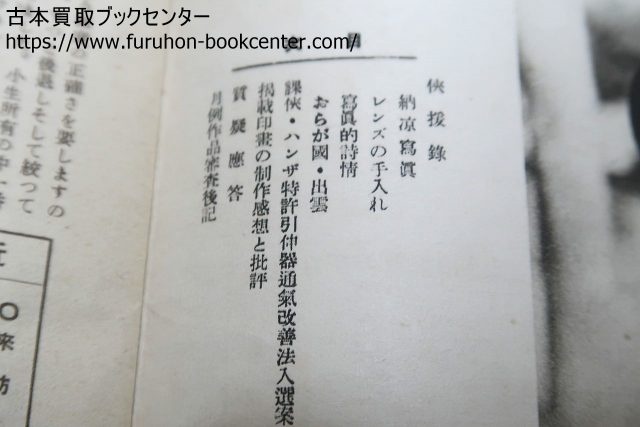 古本買取ブックセンター
https://www.furuhon-bookcenter.com/
目
俠援錄
納凉寫眞
レンズの手入れ
寫眞的詩情
おらが國・出雲
課俠・ハンザ特許引伸器通氣改善法入選案
揭載印畫の制作感想と批評
質疑應答
月例作品審査後記
の正確さを要しますの
後退しそして絞つて
小生所有の中一
〇
來
訪